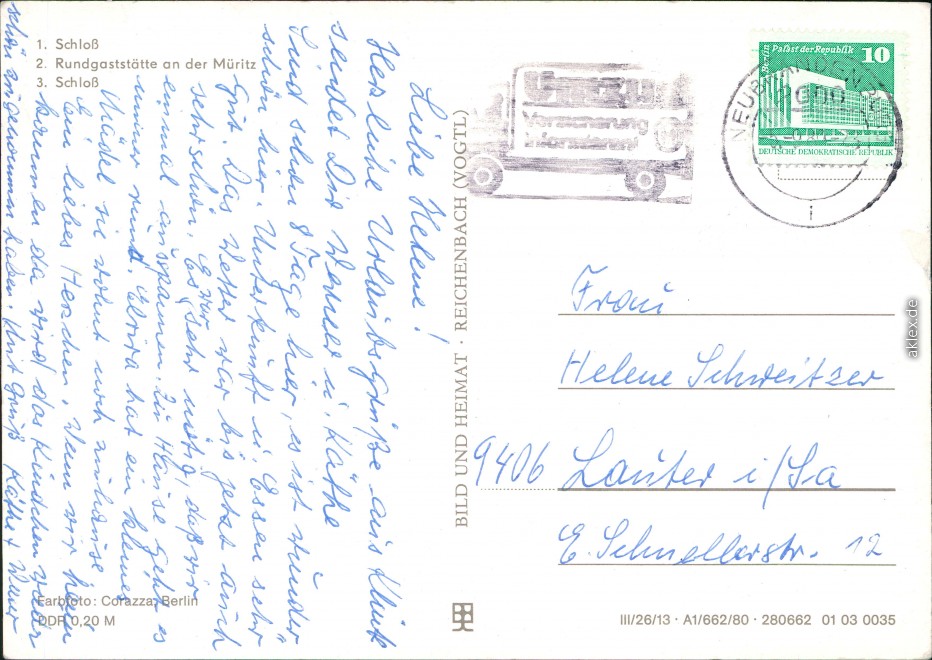 1. Schloß
2. Rundgaststätte an der Müritz
3. Schloß
Liebe Helene!
Herzliche Urlaubsgrüße aus Klink
sendet Dir Werner u. Käthe
Sind schon 8 Tage hier, es ist wunder
schön hier. Unterkunft u. Essen sehr
gut. Das Wetter war bis jetzt auch
sehr schön. Es ist sehr nötig, daß wir
einmal ausspannen. Zu Hause geht es
immer rund. Elvira hat ein kleines
Mädel sie wohnt noch zuhause
Ein liebes Herzchen. Wenn wir heim
kommen da wird das Kindchen
schon zugenommen haben. Mit Gruß Käthe + Werner
Farbfoto: Corazza, Berlin
DDR 0,20 M
BILD UND HEIMAT · REICHENBACH (VOGTL)
Versicherung
Berlin Palast der Republik 10
DEUTSCHE DEMOKRATISCHE REPUBLIK
Frau
Helene Schweitzer
9406 Lauter i/Sa
E. Schnellerstr. 12
III/26/13 · A1/662/80 · 280662 01 03 0035
aklex.de